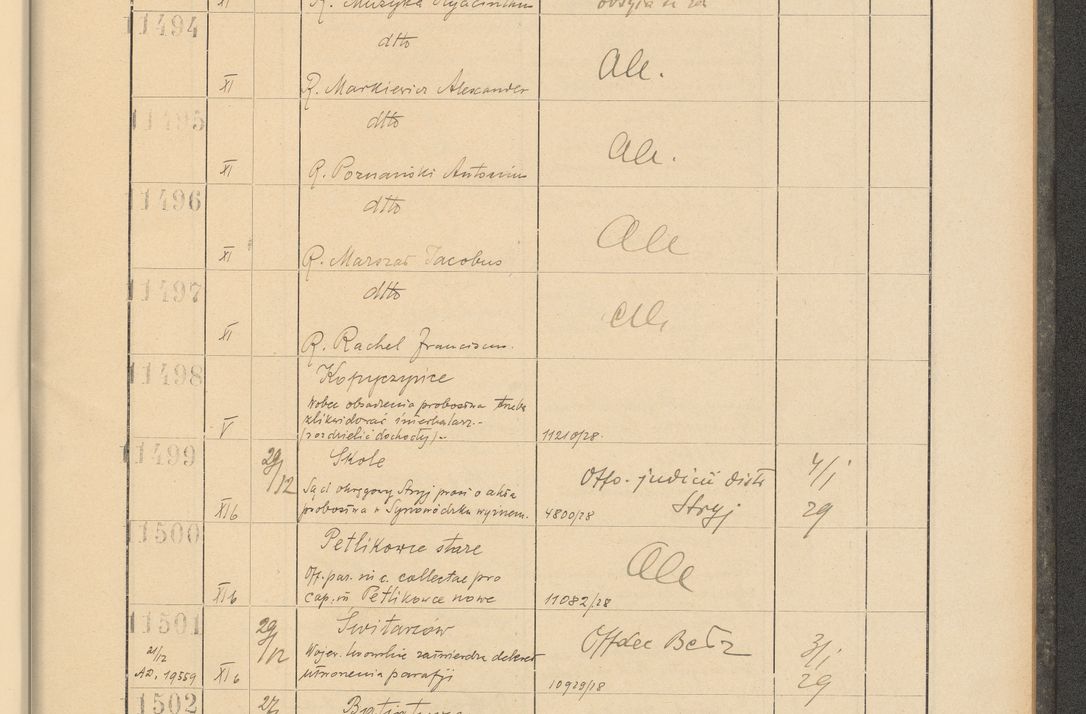 XI R. Muzyka Hyacinthus
11494
dtto
Ale.
XI R. Markiewicz Alexander
11495
dtto
Ale.
XI R. Poznański Antonius
11496
dtto
Ale
XI R. Marszał Jacobus
11497
dtto
XI R. Rachel Franciscus.
11498 Kopyczyńce
Wobec obsadzenia probostwa trzeba
zlikwidować interkalarz.-
V (rozdzielić dochody).- 11210/28.
11499 29/12 Skole
Sąd okręgowy Stryj prosi o akta Offo. judicii distr 4/I
XI6 probostwa w Synowódzku wyżnem. 4800/28 Stryj 29
11500 Petlikowce stare
Off. par. in c. collectae pro Ale
XI6 cap. in Petlikowce nowe 11082/28
11501 29/12 Świtarzów
21/12 Wojew. lwowskie zatwierdza dekret Offdec Bełz 3/I
AD. 19559 XI6 utworzenia parafji 10929/28 29
11502 27